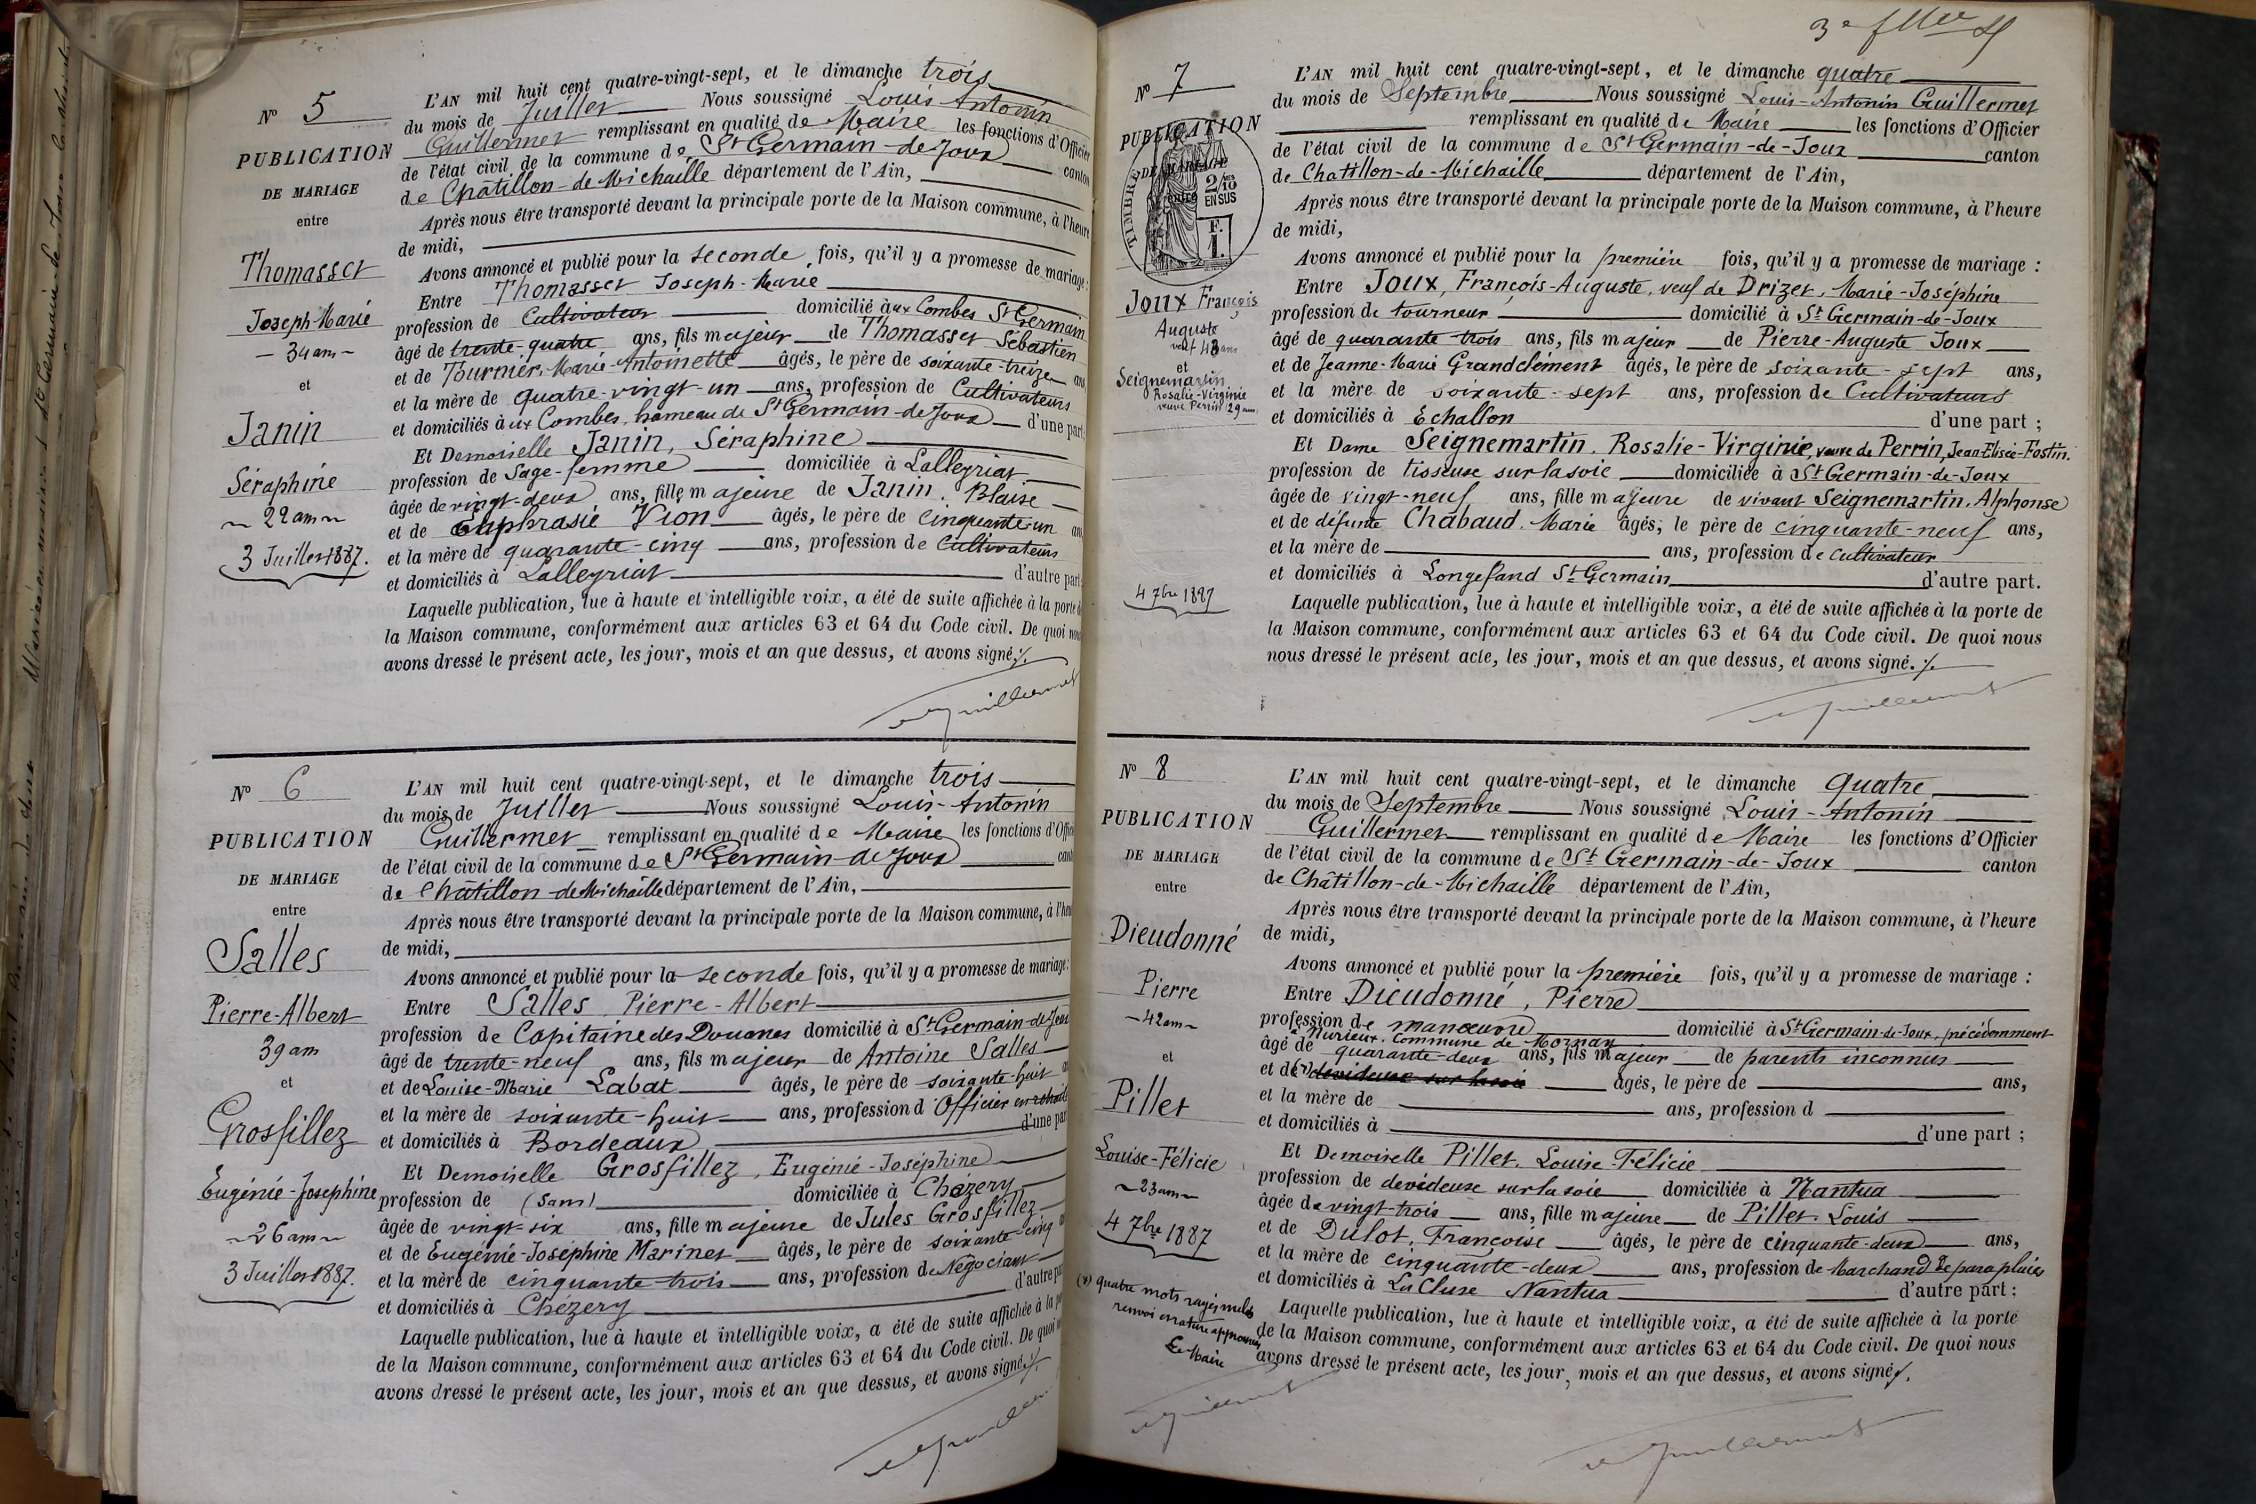 N° 5
PUBLICATION
DE MARIAGE
entre
Thomasset
Joseph-Marie
- 34 ans -
et
Janin
Séraphine
~ 22 ans ~
3 Juillet 1887.
L'AN mil huit cent quatre-vingt-sept, et le dimanche trois
du mois de Juillet Nous soussigné Louis Antonin
Guillermet remplissant en qualité de Maire les fonctions d'Officier
de l'état civil de la commune de St Germain-de-Joux canton
de Châtillon-de-Michaille département de l'Ain,
Après nous être transporté devant la principale porte de la Maison commune, à l'heure
de midi,
Avons annoncé et publié pour la seconde fois, qu'il y a promesse de mariage :
Entre Thomasset Joseph-Marie
profession de Cultivateur domicilié aux Combes St Germain
âgé de trente-quatre ans, fils majeur de Thomasset Sébastien
et de Tournier, Marie-Antoinette âgés, le père de soixante-treize ans
et la mère de quatre-vingt-un ans, profession de Cultivateurs
et domiciliés aux Combes, hameau de St Germain-de-Joux d'une part;
Et Demoiselle Janin, Séraphine
profession de Sage-femme domiciliée à Lalleyriat
âgée de vingt-deux ans, fille majeure de Janin, Blaise
et de Euphrasie Vion âgés, le père de cinquante-un ans
et la mère de quarante-cinq ans, profession de Cultivateurs
et domiciliés à Lalleyriat d'autre part
Laquelle publication, lue à haute et intelligible voix, a été de suite affichée à la porte de
la Maison commune, conformément aux articles 63 et 64 du Code civil. De quoi nous
avons dressé le présent acte, les jour, mois et an que dessus, et avons signé ./.
Guillermet
N° 6
PUBLICATION
DE MARIAGE
entre
Salles
Pierre-Albert
39 ans
et
Grosfillez
Eugénie-Josephine
~ 26 ans ~
3 Juillet 1887.
L'AN mil huit cent quatre-vingt-sept, et le dimanche trois
du mois de Juillet Nous soussigné Louis-Antonin
Guillermet remplissant en qualité de Maire les fonctions d'Offi
de l'état civil de la commune de St Germain-de-Joux cant
de Châtillon-de-Michaille département de l'Ain,
Après nous être transporté devant la principale porte de la Maison commune, à l'heu
de midi,
Avons annoncé et publié pour la seconde fois, qu'il y a promesse de mariage :
Entre Salles Pierre-Albert
profession de Capitaine des Douanes domicilié à St Germain-de-Joux
âgé de trente-neuf ans, fils majeur de Antoine Salles
et de Louise-Marie Labat âgés, le père de soixante-huit
et la mère de soixante-huit ans, profession d'Officier en retraite
et domiciliés à Bordeaux d'une par
Et Demoiselle Grosfillez, Eugénie-Joséphine
profession de (Sans) domiciliée à Chézery
âgée de vingt-six ans, fille majeure de Jules Grosfillez
et de Eugénie-Joséphine Marinet âgés, le père de soixante-cinq
et la mère de cinquante-trois ans, profession de Négociant
et domiciliés à Chézery d'autre pa
Laquelle publication, lue à haute et intelligible voix, a été de suite affichée à la po
de la Maison commune, conformément aux articles 63 et 64 du Code civil. De quoi
avons dressé le présent acte, les jour, mois et an que dessus, et avons signé ./.
3e
N° 7
PUBLICATION
DE MARIAGE
entre
TIMBRE
2/10
EN SUS
F.
1.
Joux François
Auguste
veuf 43 ans
et
Seignemartin
Rosalie-Virginie
veuve Perrin 29 ans
4 7bre 1887
L'AN mil huit cent quatre-vingt-sept, et le dimanche quatre
du mois de Septembre Nous soussigné Louis-Antonin Guillermet
remplissant en qualité de Maire les fonctions d'Officier
de l'état civil de la commune de St Germain-de-Joux canton
de Chatillon-de-Michaille département de l'Ain,
Après nous être transporté devant la principale porte de la Maison commune, à l'heure
de midi,
Avons annoncé et publié pour la première fois, qu'il y a promesse de mariage :
Entre Joux, François-Auguste, veuf de Drizet, Marie-Joséphine
profession de tourneur domicilié à St Germain-de-Joux
âgé de quarante-trois ans, fils majeur de Pierre-Auguste Joux
et de Jeanne-Marie Grandclément âgés, le père de soixante-sept ans,
et la mère de soixante-sept ans, profession de Cultivateurs
et domiciliés à Echallon d'une part ;
Et Dame Seignemartin, Rosalie-Virginie, veuve de Perrin, Jean-Elisée-Fostin.
profession de tisseuse sur la soie domiciliée à St Germain-de-Joux
âgée de vingt-neuf ans, fille majeure de vivant Seignemartin, Alphonse
et de défunte Chabaud, Marie âgés, le père de cinquante-neuf ans,
et la mère de ans, profession de cultivateur
et domiciliés à Longefand St Germain d'autre part.
Laquelle publication, lue à haute et intelligible voix, a été de suite affichée à la porte de
la Maison commune, conformément aux articles 63 et 64 du Code civil. De quoi nous
nous dressé le présent acte, les jour, mois et an que dessus, et avons signé. ./.
Guillermet
N° 8
PUBLICATION
DE MARIAGE
entre
Dieudonné
Pierre
- 42 ans ~
et
Pillet
Louise-Félicie
~ 23 ans ~
4 7bre 1887
(x) quatre mots rayés nuls
Le Maire
Guillermet
L'AN mil huit cent quatre-vingt-sept, et le dimanche quatre
du mois de Septembre Nous soussigné Louis-Antonin
Guillermet remplissant en qualité de Maire les fonctions d'Officier
de l'état civil de la commune de St Germain-de-Joux canton
de Châtillon-de-Michaille département de l'Ain,
Après nous être transporté devant la principale porte de la Maison commune, à l'heure
de midi,
Avons annoncé et publié pour la première fois, qu'il y a promesse de mariage :
Entre Dieudonné, Pierre
profession de manœuvre domicilié à St Germain-de-Joux, précédemment
à Nurieux, Commune de Mornay
âgé de quarante-deux ans, fils majeur de parents inconnus
et de (x) dévideuse sur la soie âgés, le père de ans,
et la mère de ans, profession d
et domiciliés à d'une part ;
Et Demoiselle Pillet, Louise-Félicie
profession de dévideuse sur la soie domiciliée à Nantua
âgée de vingt-trois ans, fille majeure de Pillet Louis
et de Dulot, Françoise âgés, le père de cinquante-deux ans,
et la mère de cinquante-deux ans, profession de Marchand de parapluies
et domiciliés à La Cluse Nantua d'autre part :
Laquelle publication, lue à haute et intelligible voix, a été de suite affichée à la porte
de la Maison commune, conformément aux articles 63 et 64 du Code civil. De quoi nous
avons dressé le présent acte, les jour, mois et an que dessus, et avons signé ./.
Guillermet